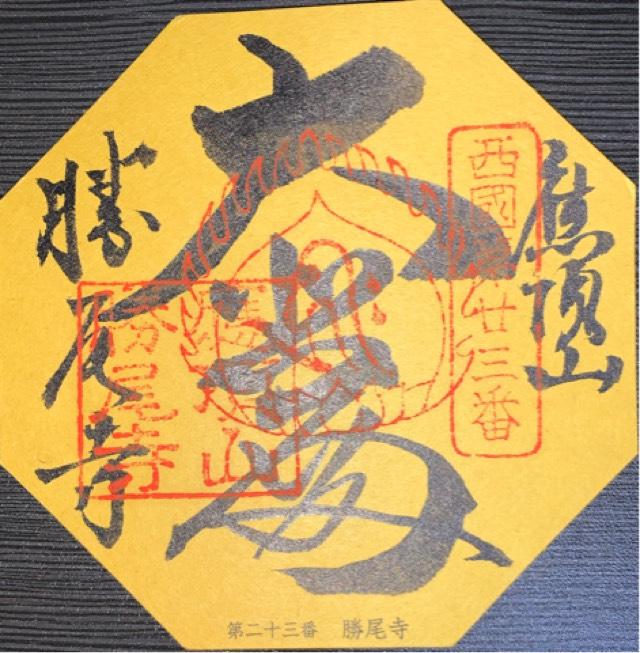 應頂山
西國第廿三番
大
應頂山
勝尾寺
勝尾寺
第二十三番　勝尾寺